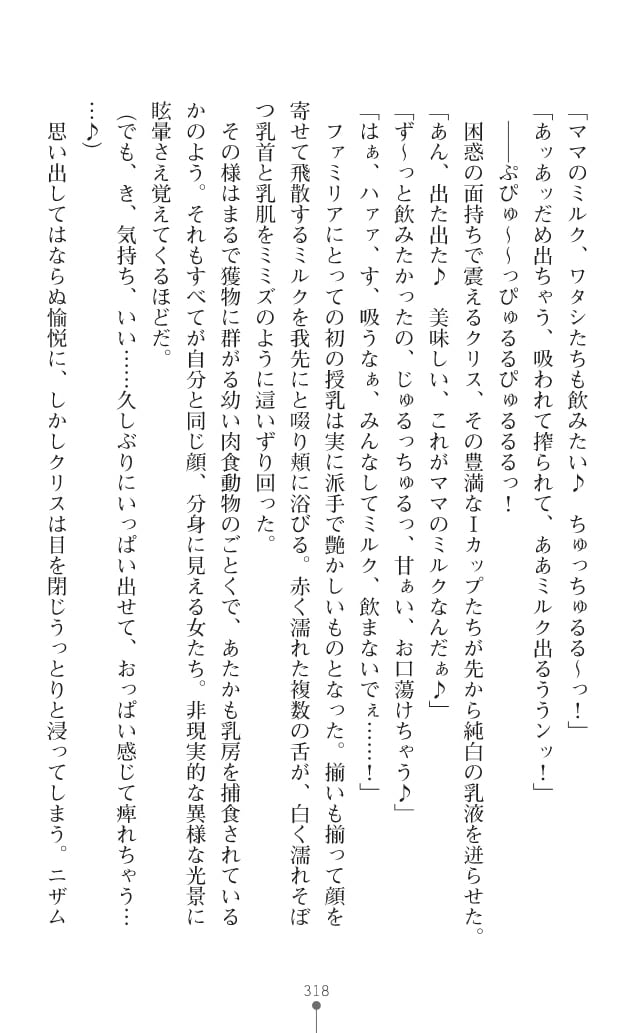 「ママのミルク、ワタシたちも飲みたい♪　ちゅっちゅるる〜っ！」
「あッあッだめ出ちゃう、吸われて搾られて、ああミルク出るううンッ！」
――ぷぴゅ〜〜っぴゅるるぴゅるるるっ！
困惑の面持ちで震えるクリス、その豊満なＩカップたちが先から純白の乳液を迸らせた。
「あん、出た出た♪　美味しい、これがママのミルクなんだぁ♪」
「ず〜っと飲みたかったの、じゅるっちゅるっ、甘ぁい、お口蕩けちゃう♪」
「はぁ、ハァァ、す、吸うなぁ、みんなしてミルク、飲まないでぇ……！」
ファミリアにとっての初の授乳は実に派手で艶かしいものとなった。揃いも揃って顔を
寄せて飛散するミルクを我先にと啜り頬に浴びる。赤く濡れた複数の舌が、白く濡れそぼ
つ乳首と乳肌をミミズのように這いずり回った。
その様はまるで獲物に群がる幼い肉食動物のごとくで、あたかも乳房を捕食されている
かのよう。それもすべてが自分と同じ顔、分身に見える女たち。非現実的な異様な光景に
眩暈さえ覚えてくるほどだ。
（でも、き、気持ち、いい……久しぶりにいっぱい出せて、おっぱい感じて痺れちゃう…
…♪）
思い出してはならぬ愉悦に、しかしクリスは目を閉じうっとりと浸ってしまう。ニザム
318